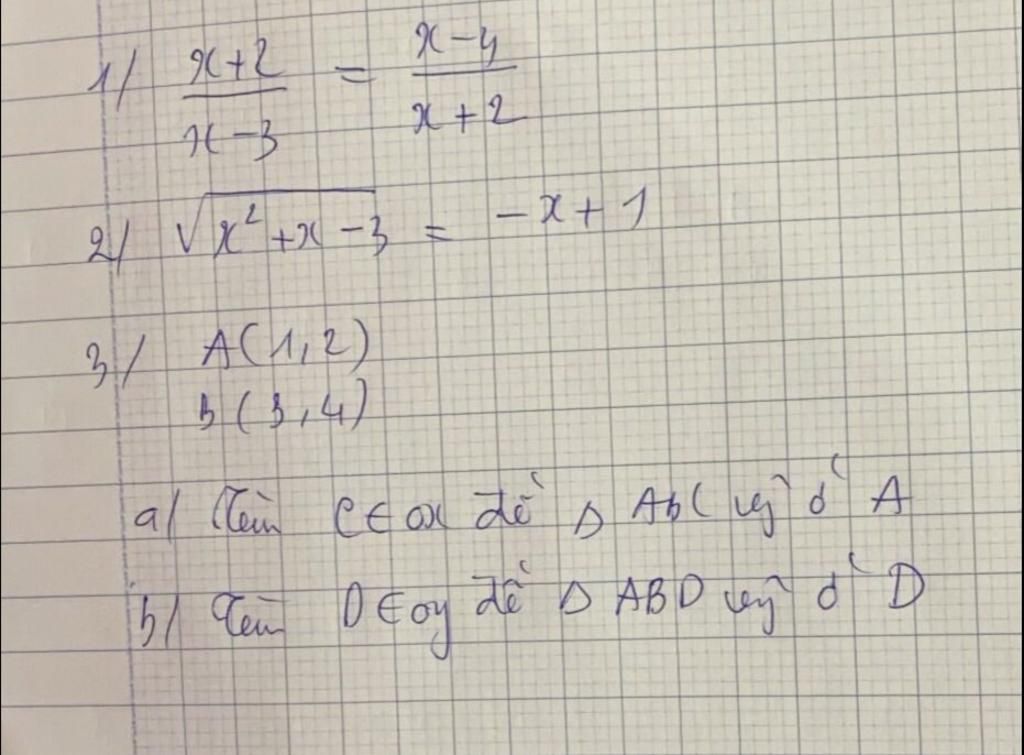 1/ x+2 / x-3 = x-4 / x+2
2/ √x²+x-3 = -x+1
3/ A(1,2)
B(3,4)
a/ Tìm C∈ox để Δ ABC vg ở A
b/ Tìm D∈oy để Δ ABD vg ở D